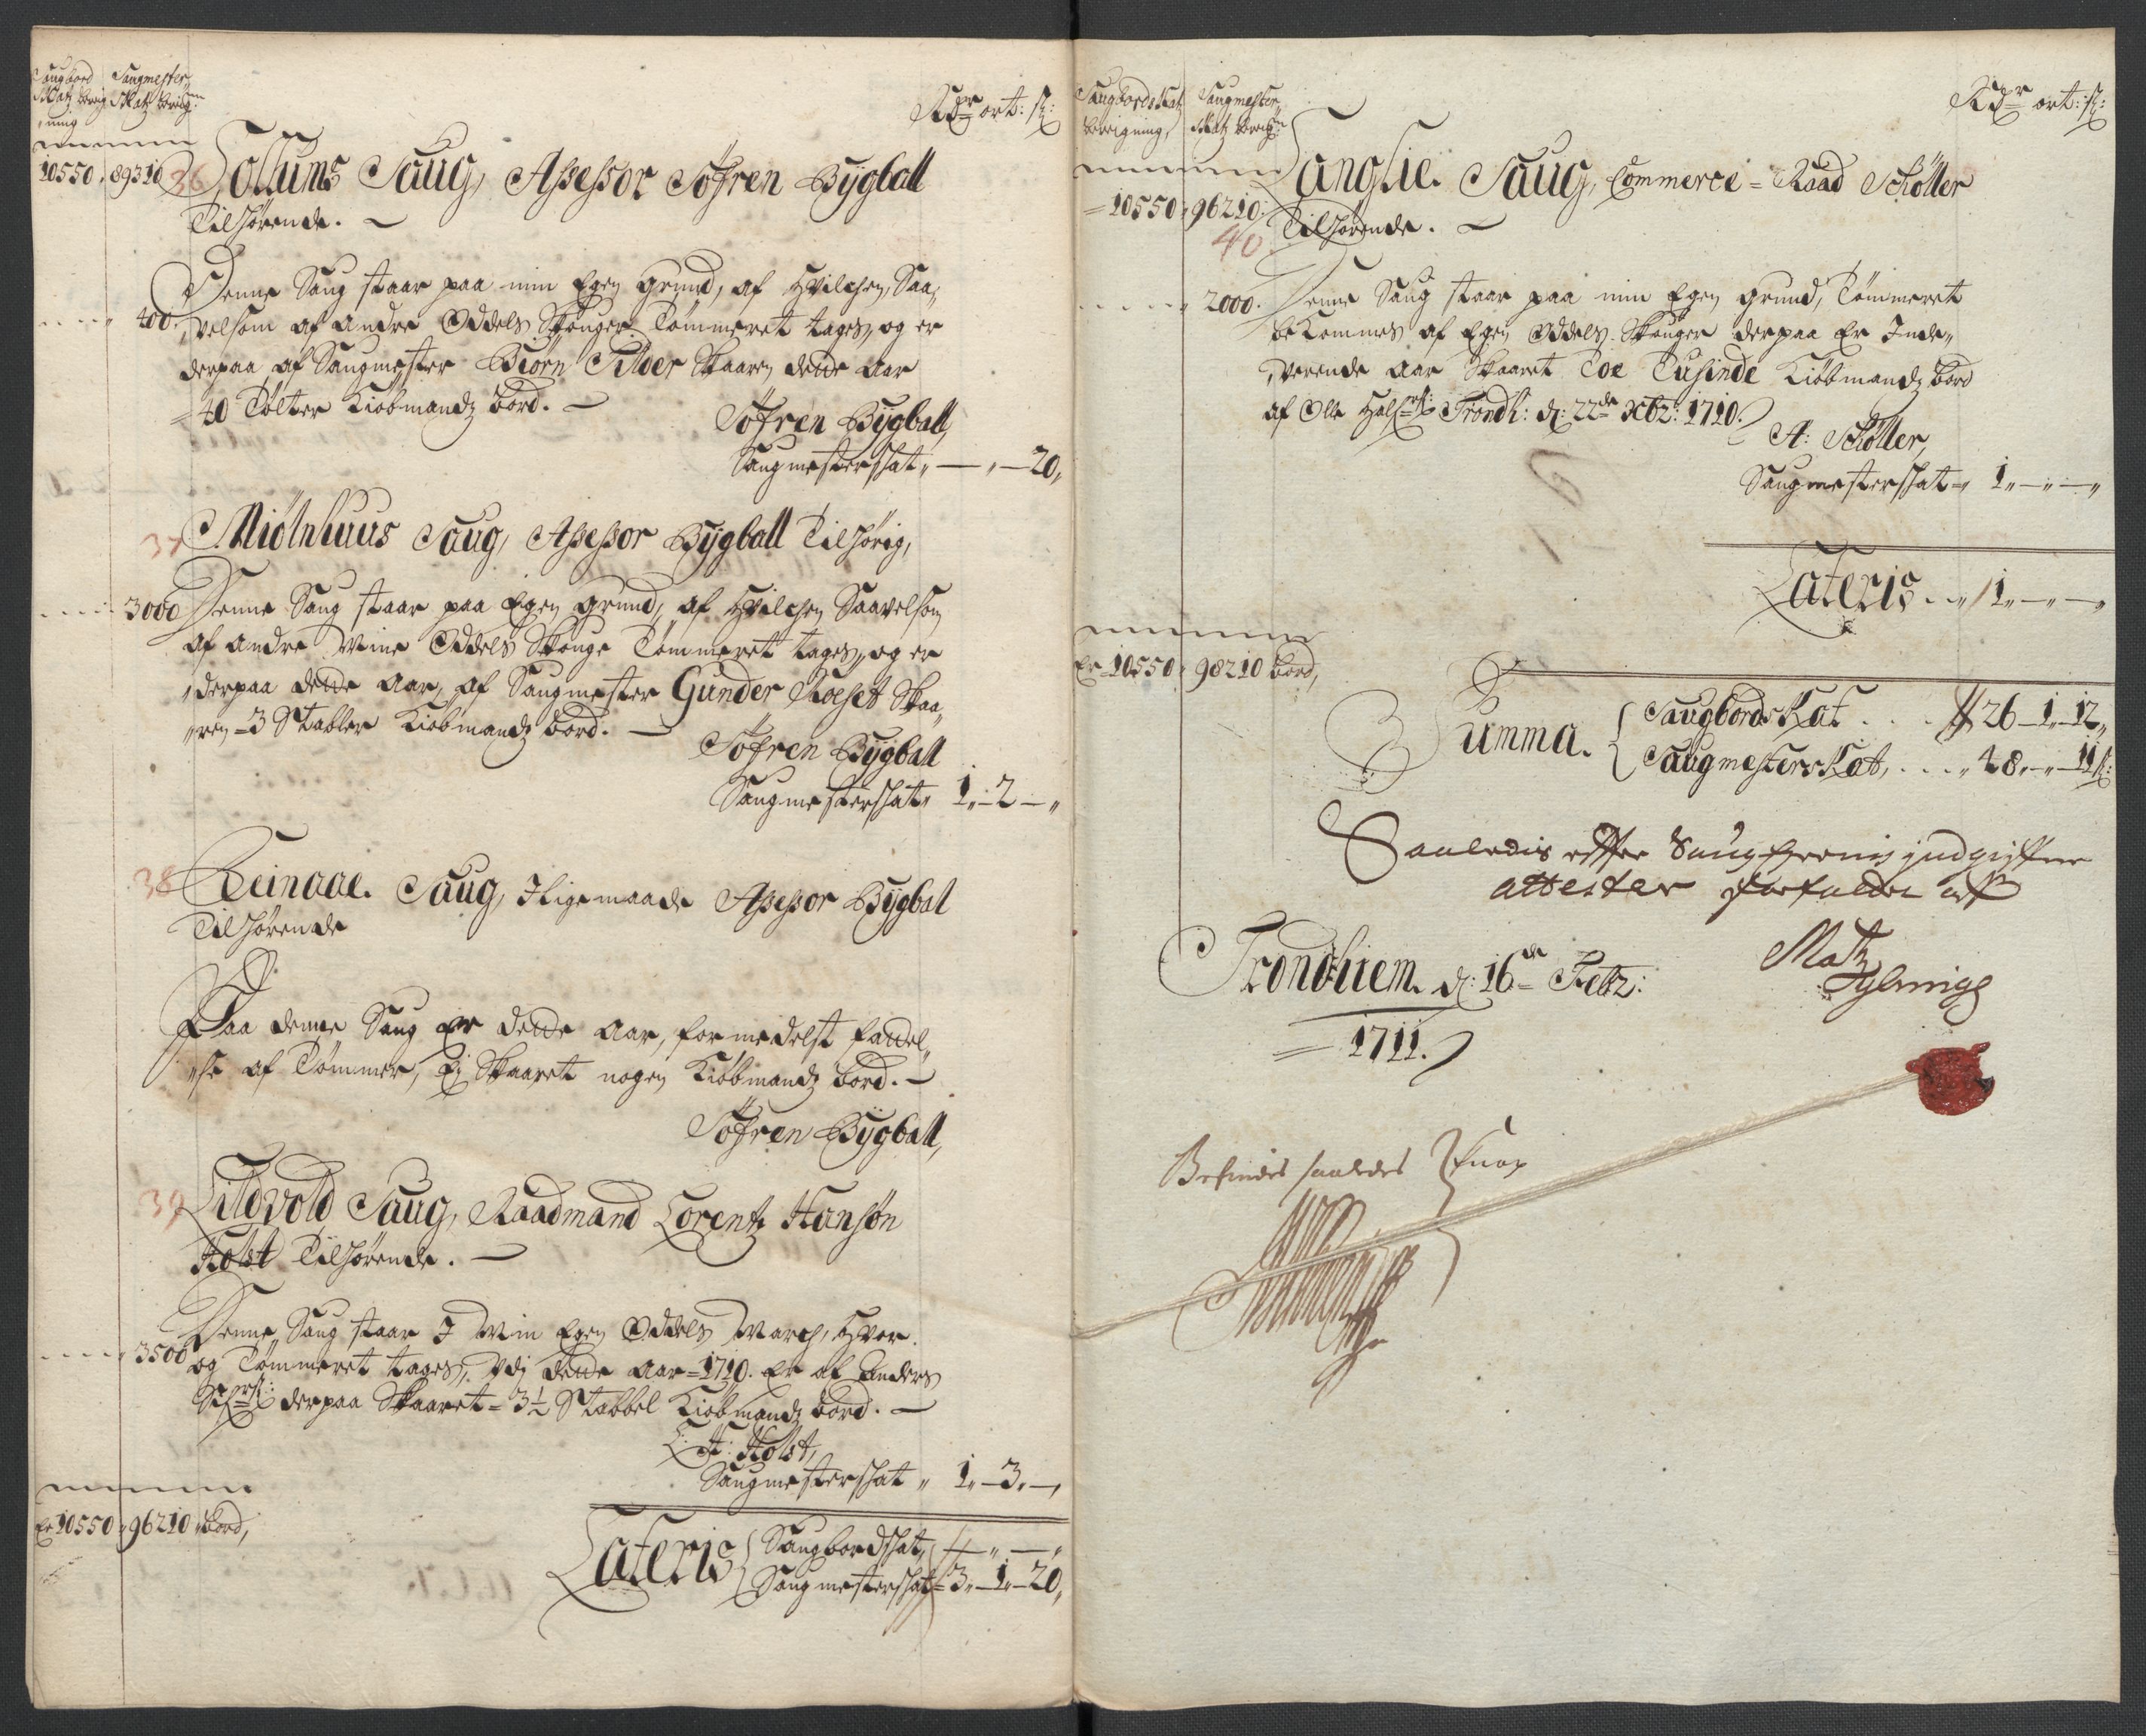 Saugbord Saugmester
Skatz Berig Skatz Berign:
ning
Rdr ort: s:
10550 , 89310 36 Sollums Saug, Assessor Söfren Bÿgball
Tilhørende.
Denne Saug staar paa min Egen grund, af Hvilchen Saa,
400 velsom af andre Oddels Skouger Tømmeret tages, og er
derpaa af Saugmester Biørn Tilder Skaaren dette Aar
= 40 Tolter Kiøbmandz bord.
Söfren Bÿgball,
Saugmesterschat „ — „ — 20„
37 Miölnhuus Saug, Assessor Bÿgball Tilhørig,
3000 Denne Saug staar paa Egen grund, af Hvilchen Saavelsom
af andre Mine Oddels Skouge Tømmeret tages, og er
derpaa dette Aar, af Saugmester Gunder Roeset Skaa,
ren = 3 Stabler Kiøbmandz bord.
Söfren Bÿgball
Saugmesterschat „ 1„ - 2 - „
38 Reinaae. Saug, Iligemaade Assessor Bÿgbal
Tilhørende
Paa denne Saug Er dette Aar, formedelst fattel,
se af Tømmer, Ej Skaaret nogen Kiøbmandz bord.
Söfren Bÿgball,
39 Lildvold Saug, Raadmand Lorentz Hansøn
Holst Tilhørende.
Denne Saug staar I Min Egen Oddels March, Hvor
3500 og Tømmeret tages, Udj dette Aar = 1710. Er af Anders
derpaa Skaaret = 3½ Stabbel Kiøbmandz bord.
L: H: Holst,
Saugmesterschat „ 1„ - 3„ -„
Er 10550 „ 96210 „ Bord,
Lateris { Saugbordschat, — „ — „
Saugmesterschat = 3„ - 1„ - 20„
Saugbords Skat Saugmester
Berigning, Skatz Berign:
Rdr ort: s:
= 10550 „ 96210: Langlie. Saug, Commerce = Raad Schøller
40 Tilhørende.
2000. Denne Saug staar paa min Egen grund, Tømmeret
bekommes af Egen Oddels Skouger derpaa Er Inde„
værende Aar Skaaret Toe Tusinde Kiøbmandz bord
af Olle Trondh: d: 22de Xbr: 1710.
A: Schøller,
Saugmesterschat = 1„ - „ - „
Lateris . . „ 1„ - „ - „
Er = 10550 „ 98210 Bord,
Summa. { Saugbords Skat . . . 26 - 1 - 12„
Saugmesters Skat, . . . „ 48„ - „ - 11 s:
Saaledis efter Saug Ejernis indgifne
attester forfattet af
Trondhiem. d: 16de Febr:
1711.
Befindes saaledes